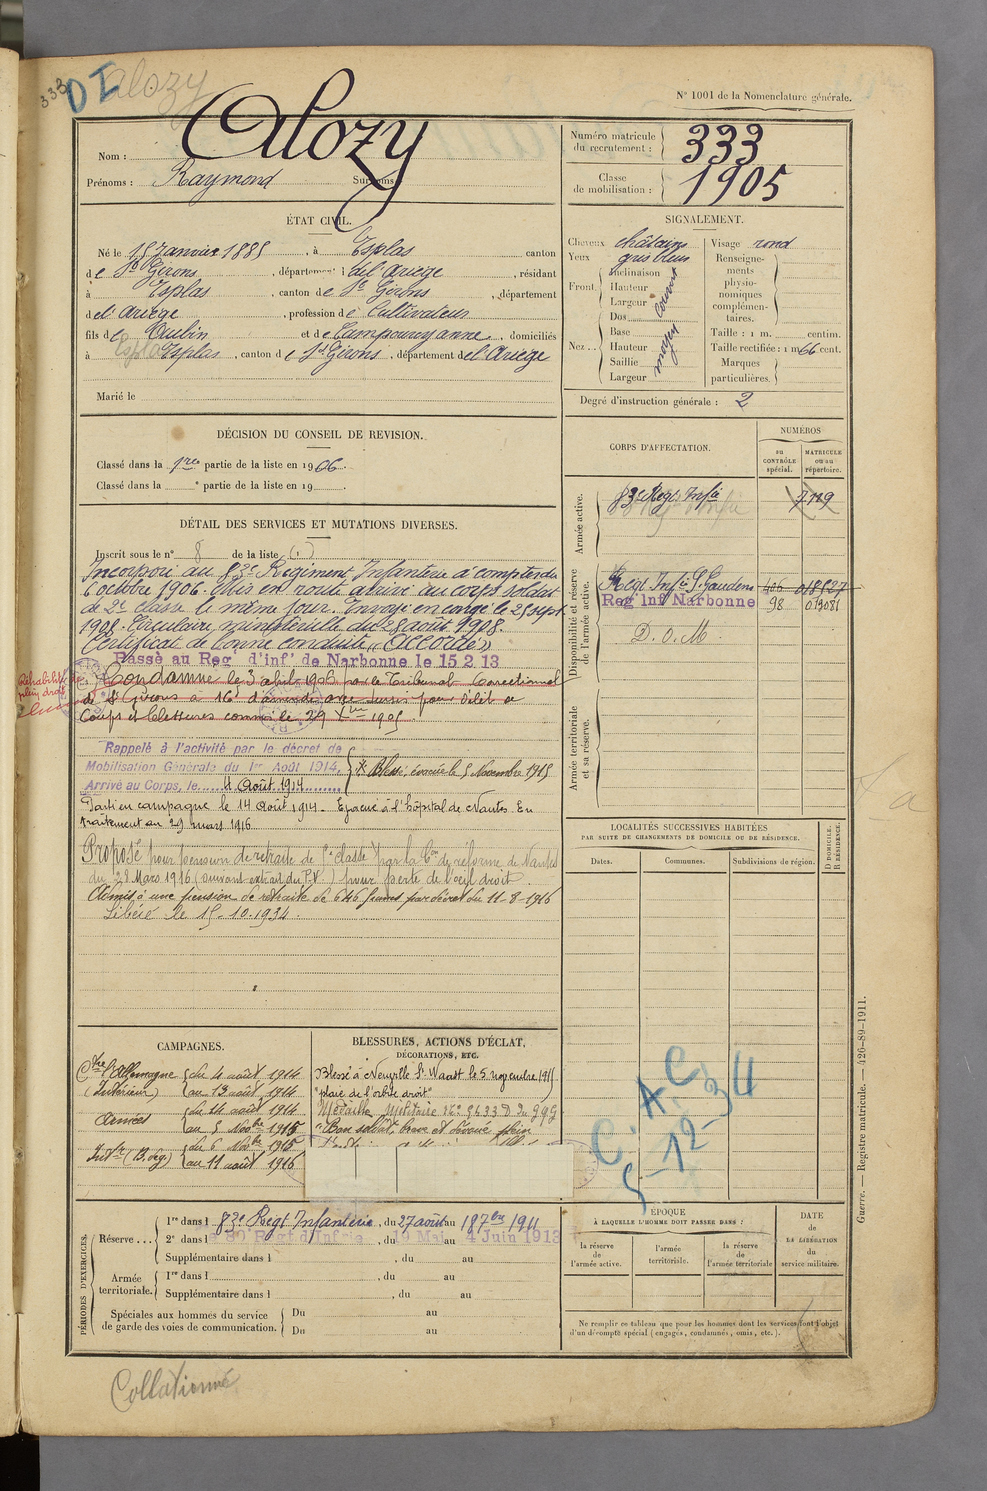 333
DI
alozy
N° 1001 de la Nomenclature générale.
Nom : Alozy
Prénoms : Raymond Surnoms
Numéro matricule du recrutement : 333
Classe de mobilisation : 1905
ÉTAT CIVIL.
Né le 15 Janvier 1885, à Esplas canton
de St Girons, département de l'ariège, résidant
à Esplas, canton de St Girons, département
de l'ariège, profession de Cultivateur
fils de Aubin et de Campourcy anne, domiciliés
à Esplas, canton de St Girons, département de l'Ariège
Marié le
SIGNALEMENT.
Cheveux châtains
Yeux gris bleus
Front. Inclinaison
Hauteur
Largeur
couvert
Nez.. Dos
Base
Hauteur
Saillie
Largeur
moyen
Visage rond
Renseignements physionomiques complémentaires.
Taille : 1 m. centim.
Taille rectifiée : 1 m 66 cent.
Marques particulières.
Degré d'instruction générale : 2
DÉCISION DU CONSEIL DE REVISION.
Classé dans la 1re partie de la liste en 1906.
Classé dans la e partie de la liste en 19
DÉTAIL DES SERVICES ET MUTATIONS DIVERSES.
Inscrit sous le n° 8 de la liste (1)
Incorporé au 83e Régiment Infanterie à compter du
6 octobre 1906. Mis en route arrivé au corps soldat
de 2e classe le même jour. Envoyé en congé le 25 sept
1908. Circulaire ministérielle du 28 août 1908.
Certificat de bonne conduite « Accordé »
Passé au Reg d'inf de Narbonne le 15.2.13
Condamné le 3 avril 1906 par le Tribunal Correctionnel
de St Girons à 16f d'amende avec sursis pour délit de
Coups et blessures commis le 29 Xbre 1905.
Réhabilité de plein droit
Rappelé à l'activité par le décret de
Mobilisation Générale du 1er Août 1914.
Arrivé au Corps, le 4 Août 1914
Blessé, évacué le 5 Novembre 1915
Parti en campagne le 14 Août 1914. Evacué à l'hôpital de Nantes. En
traitement au 29 mars 1916
Proposé pour pension de retraite de 5e classe par la Con de réforme de Nantes
du 28 Mars 1916 (suivant extrait du P.V.) pour perte de l'œil droit.
Admis à une pension de retraite de 646 francs par décret du 11-8-1916
Libéré le 15-10-1934.
CORPS D'AFFECTATION.
NUMÉROS
au CONTRÔLE spécial.
MATRICULE ou au répertoire.
Armée active.
83e Regt Infie 7119
Disponibilité et réserve de l'armée active.
Regt Infie S. Gaudens 406 018527
Reg Inf Narbonne 98 019081
D.O.M.
Armée territoriale et sa réserve.
LOCALITÉS SUCCESSIVES HABITÉES
PAR SUITE DE CHANGEMENTS DE DOMICILE OU DE RÉSIDENCE.
Dates.
Communes.
Subdivisions de région.
D DOMICILE.
R RÉSIDENCE.
CAMPAGNES.
Ctre l'Allemagne du 4 août 1914
(Intérieur) au 13 août 1914
Armées du 14 août 1914
au 5 Novbre 1915
Intr (B. deg.) du 6 Novbre 1915
au 11 août 1916
BLESSURES, ACTIONS D'ÉCLAT,
DÉCORATIONS, ETC.
Blessé à Neuville St Waast le 5 novembre 1915
"plaie de l'orbite droit"
Médaille Militaire
"Bon soldat, brave et dévoué plein
C.A.C
5-12-34
PÉRIODES D'EXERCICES.
Réserve... 1re dans l 83e Regt Infanterie, du 27 août au 18 7bre 1911
2e dans l e 80e Regt d'Infrie, du 19 Mai au 4 Juin 1913
Supplémentaire dans l , du au
Armée territoriale. 1re dans l , du au
Supplémentaire dans l , du au
Spéciales aux hommes du service de garde des voies de communication. Du au
Du au
ÉPOQUE
À LAQUELLE L'HOMME DOIT PASSER DANS :
la réserve de l'armée active.
l'armée territoriale.
la réserve de l'armée territoriale
DATE de LA LIBÉRATION du service militaire.
Ne remplir ce tableau que pour les hommes dont les services font l'objet
d'un décompte spécial (engagés, condamnés, omis, etc.).
Guerre. — Registre matricule. — 426-89-1911.
Collationné